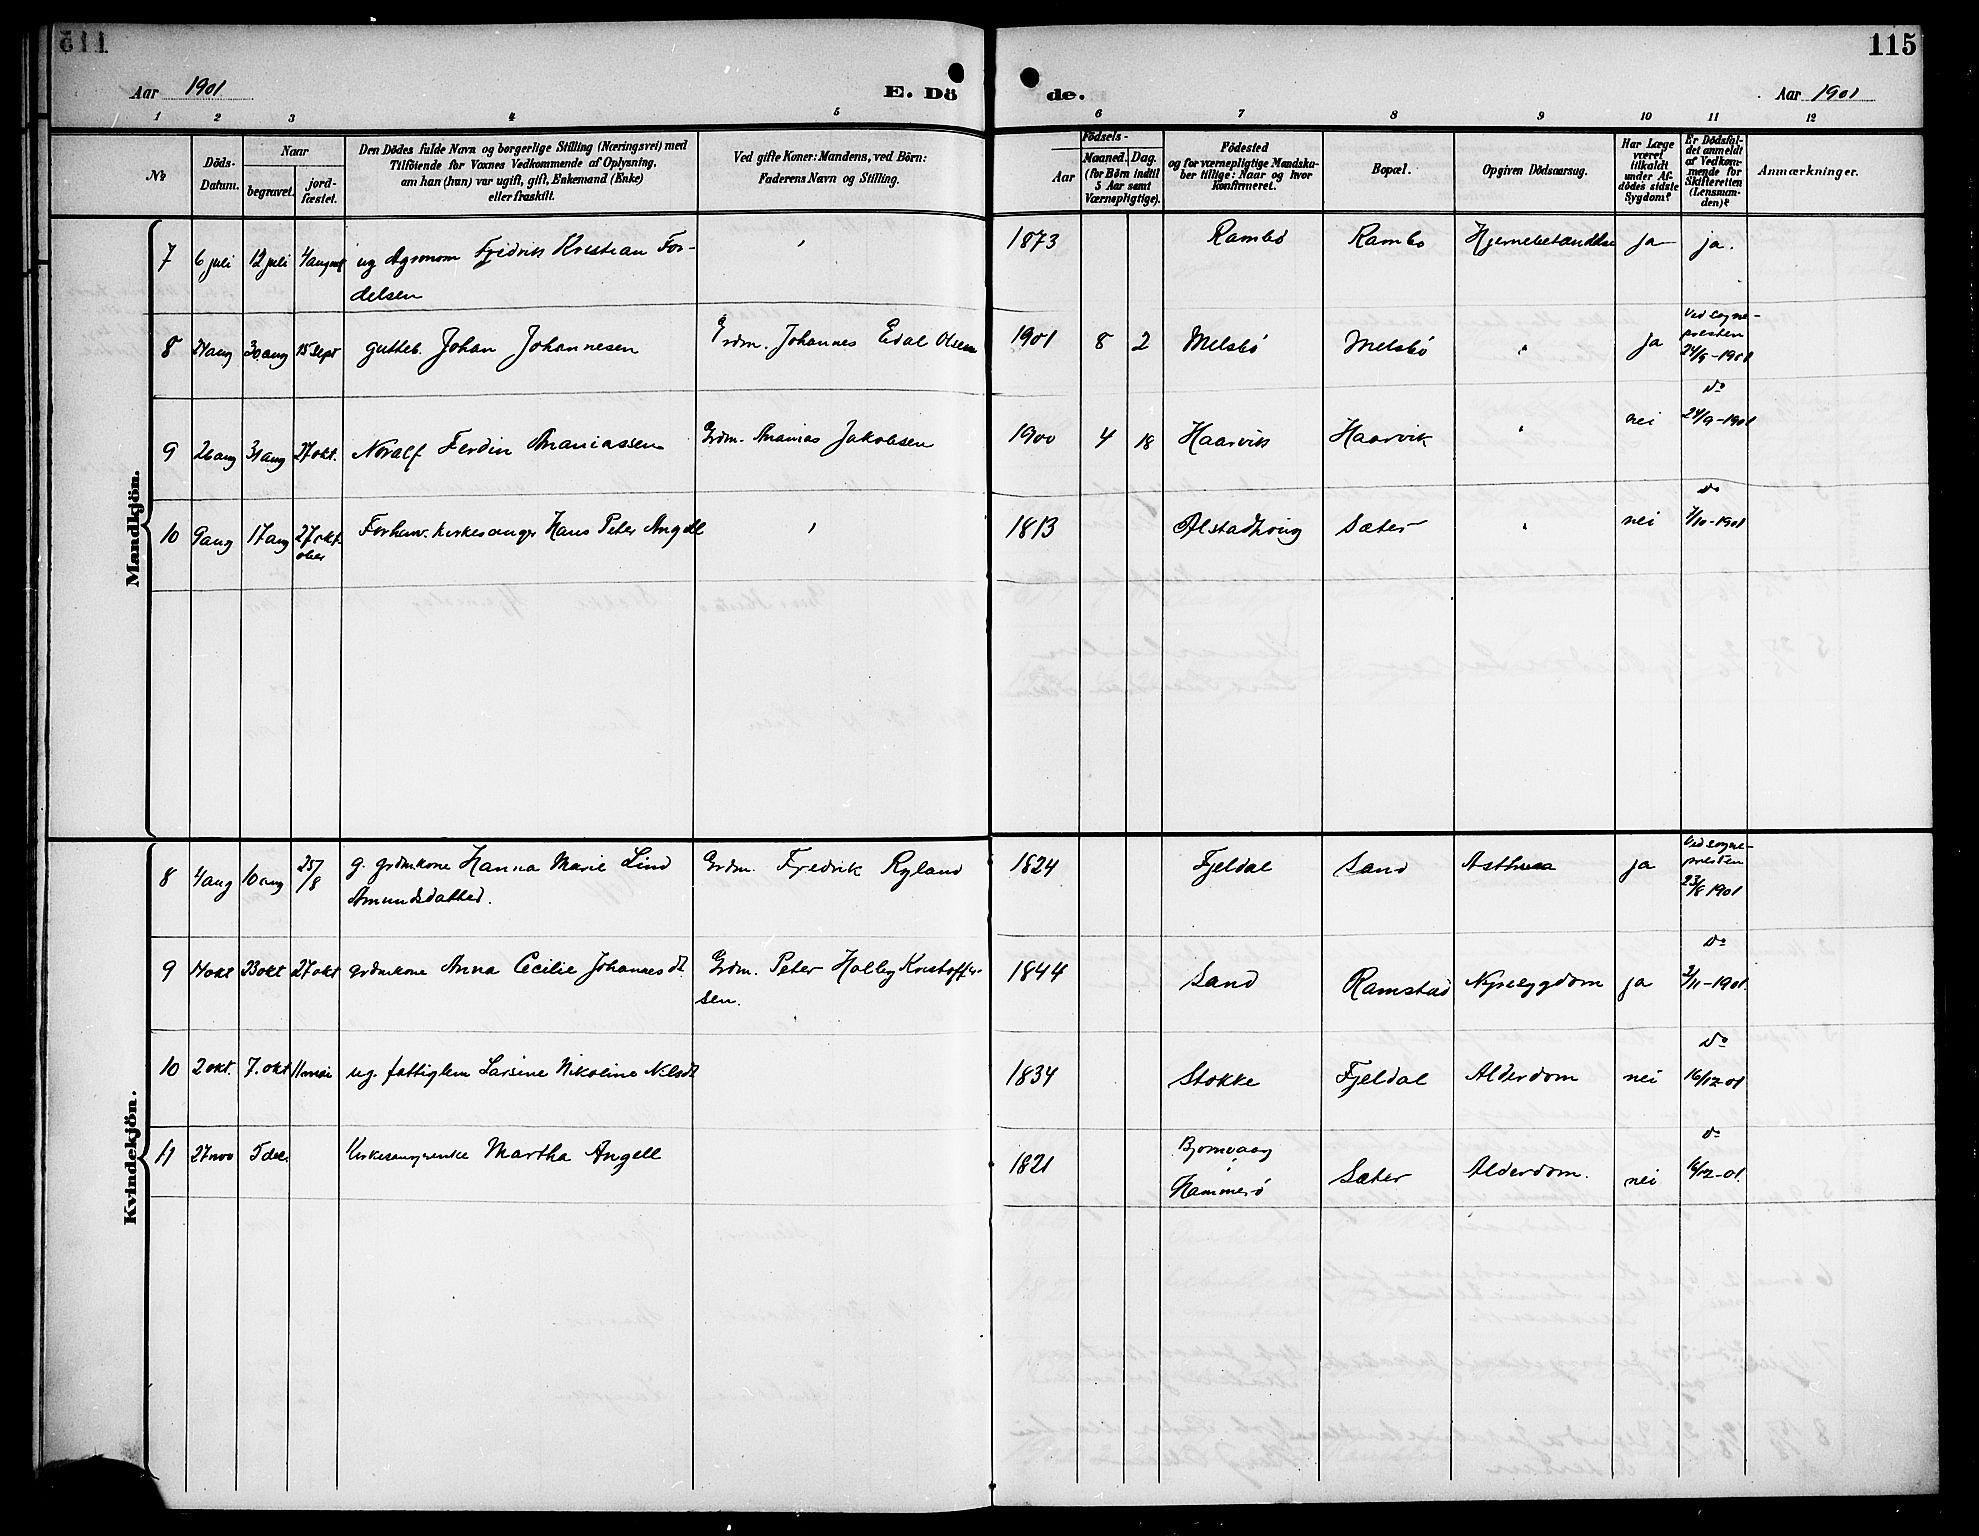 115
Aar 1901
E. Döde.
Aar 1901
1 2 3 4 5 6 7 8 9 10 11 12
№
Döds-Datum.
Naar
begravet.
jord-fæstet.
Den Dödes fulde Navn og borgerlige Stilling (Næringsvei) med
Tilföiende for Voxnes Vedkommende af Oplysning,
om han (hun) var ugift, gift, Enkemand (Enke)
eller fraskilt.
Ved gifte Koner: Mandens, ved Börn:
Faderens Navn og Stilling.
Födsels-
Aar
Maaned. Dag.
(for Börn indtil
5 Aar samt
Værnepligtige).
Födested
og for værnepligtige Mandska-
ber tillige: Naar og hvor
Konfirmeret.
Bopæl.
Opgiven Dödsaarsag.
Har Læge
været
tilkaldt
under Af-
dödes sidste
Sygdom?
Er Dödsfal-
det anmeldt
af Vedkom-
mende for
Skifteretten
(Lensman-
den)?
Anmærkninger.
Mandkjön.
7 6 juli 12 juli 4 august ug Agronom Fredrik Kristian For- 1873 Rambö Rambo Hjernebetændelse ja ja.
delsen
8 24 aug 30 aug 15 sept gutteb. Johan Johannesen Grdm. Johannes Edal Olsen 1901 8 2 Melsbö Melsbö " ja Ved sogne-
presten
24/9-1901
9 26 aug 31 aug 27 okt. Noralf Ferdin Ananiassen Grdm. Ananias Jakobsen 1900 4 18 Haarvik Haarvik " nei do
24/9-1901
10 9 aug 17 aug 27 okt-
ober Forhenv. kirkesanger Hans Peter Angell 1813 Alstadhoug Sæter " nei do
/10-1901
Kvindekjön.
8 4 aug 10 aug 25/8 g. grdmkone Hanna Marie Lind Grdm. Fredrik Ryland 1824 Fjeldal Sand Asthma ja Ved sogne-
Amundsdatter. presten
23/8 1901
9 14 okt 23 okt 27 okt grdmkone Anna Cecilie Johannesdt. Grdm. Peter Holley Kristoffer-
sen. 1844 Sand Ramstad Nyresygdom ja do
/11-1901.
10 2 okt. 7. okt 11 mai ug. fattiglem Larsine Nikoline Nilsdt 1834 Stokke Fjeldal Alderdom nei do
16/12-01
11 27 nov 5 dec. Kirkesangerenke Martha Angell 1821 Bjornvaag
Hammerö Sæter Alderdom. nei do
16/12-01.